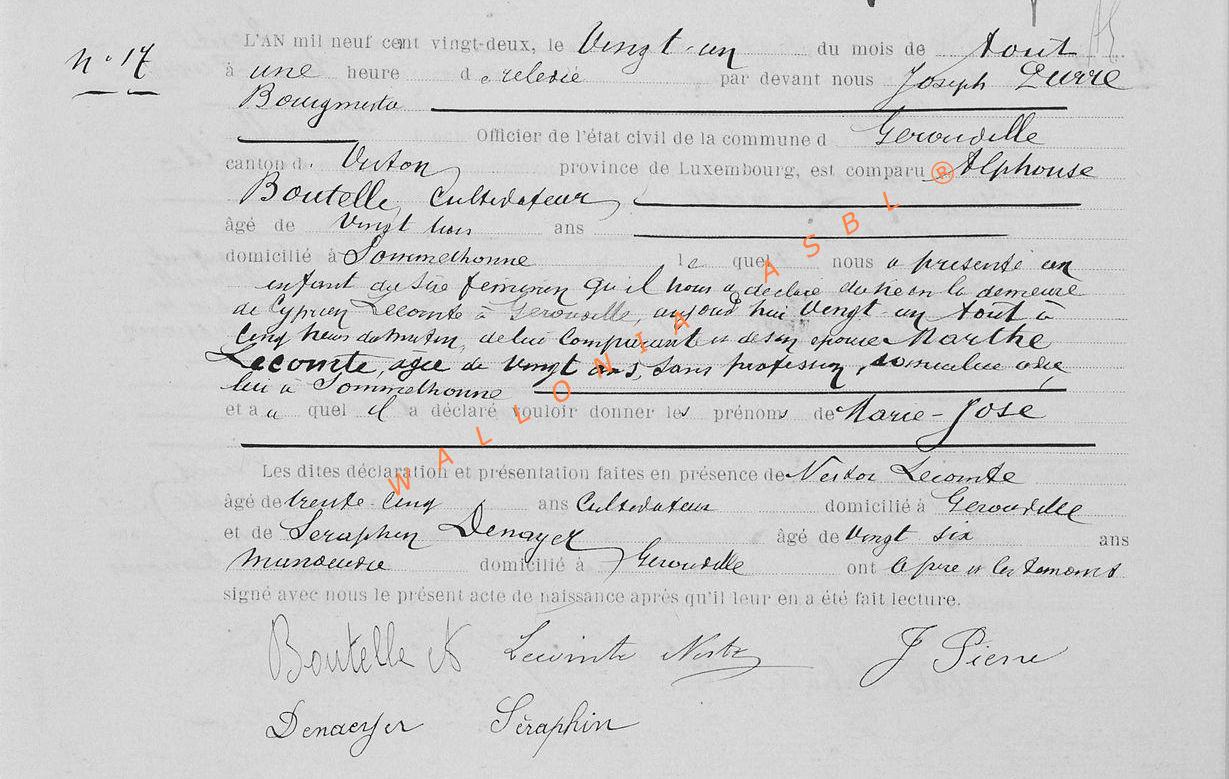 N° 17
L'AN mil neuf cent vingt-deux, le Vingt-un du mois de Août
à une heure de relevée par devant nous Joseph Pierre
Bourgmestre
Officier de l'état civil de la commune d Gérouville
canton d. Virton province de Luxembourg, est comparu Alphonse
Boutelle, Cultivateur
âgé de vingt trois ans
domicilié à Sommethonne le quel nous a présenté un
enfant du sexe féminin qu'il nous a déclaré être né en la demeure
de Cyprien Lecomte à Gérouville, aujourd'hui Vingt-un Août à
Cinq heures du matin, de lui Comparant et de son épouse Marthe
Lecomte, agée de vingt ans, sans profession, domiciliée avec
lui à Sommethonne
et a quel il a déclaré vouloir donner les prénoms de Marie-José
Les dites déclaration et présentation faites en présence de Nestor Lecomte
âgé de trente-Cinq ans Cultivateur domicilié à Gérouville
et de Seraphin Denayer âgé de Vingt six ans
manoeuvre domicilié à Gérouville ont le père et les témoins
signé avec nous le présent acte de naissance après qu'il leur en a été fait lecture.
Boutelle A Lecomte Nestor J Pierre
Denaeyer Séraphin
WALLONIA ASBL ®